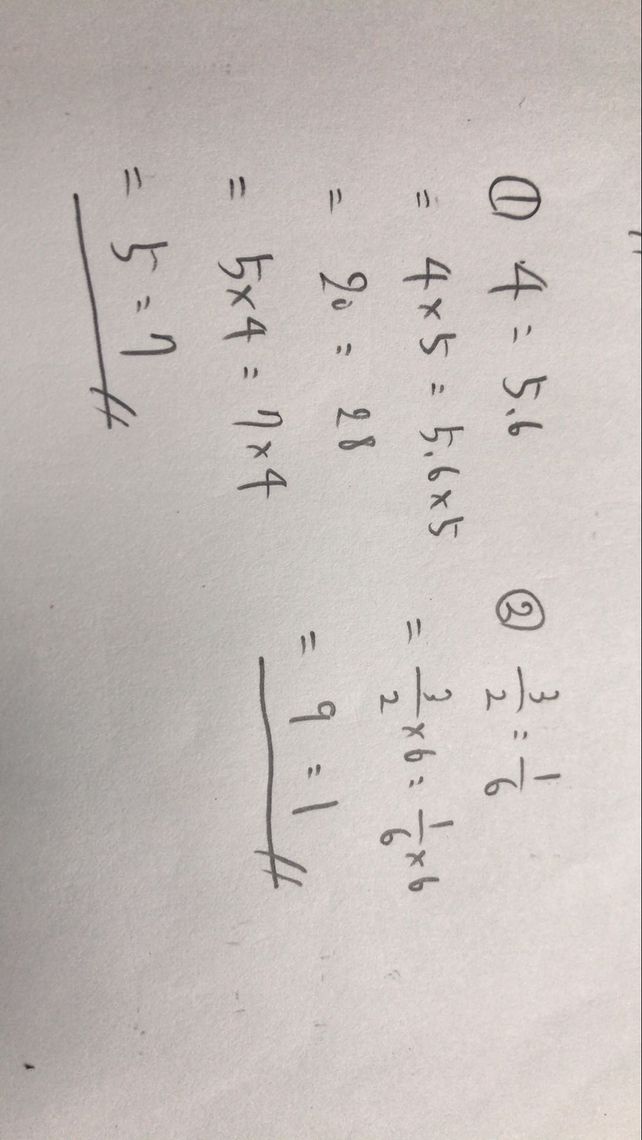 ① 4 = 5.6
= 4 × 5 = 5.6 × 5
= 20 = 28
= 5 × 4 = 7 × 4
= 5 = 7
② 3/2 = 1/6
= 3/2 × 6 = 1/6 × 6
= 9 = 1